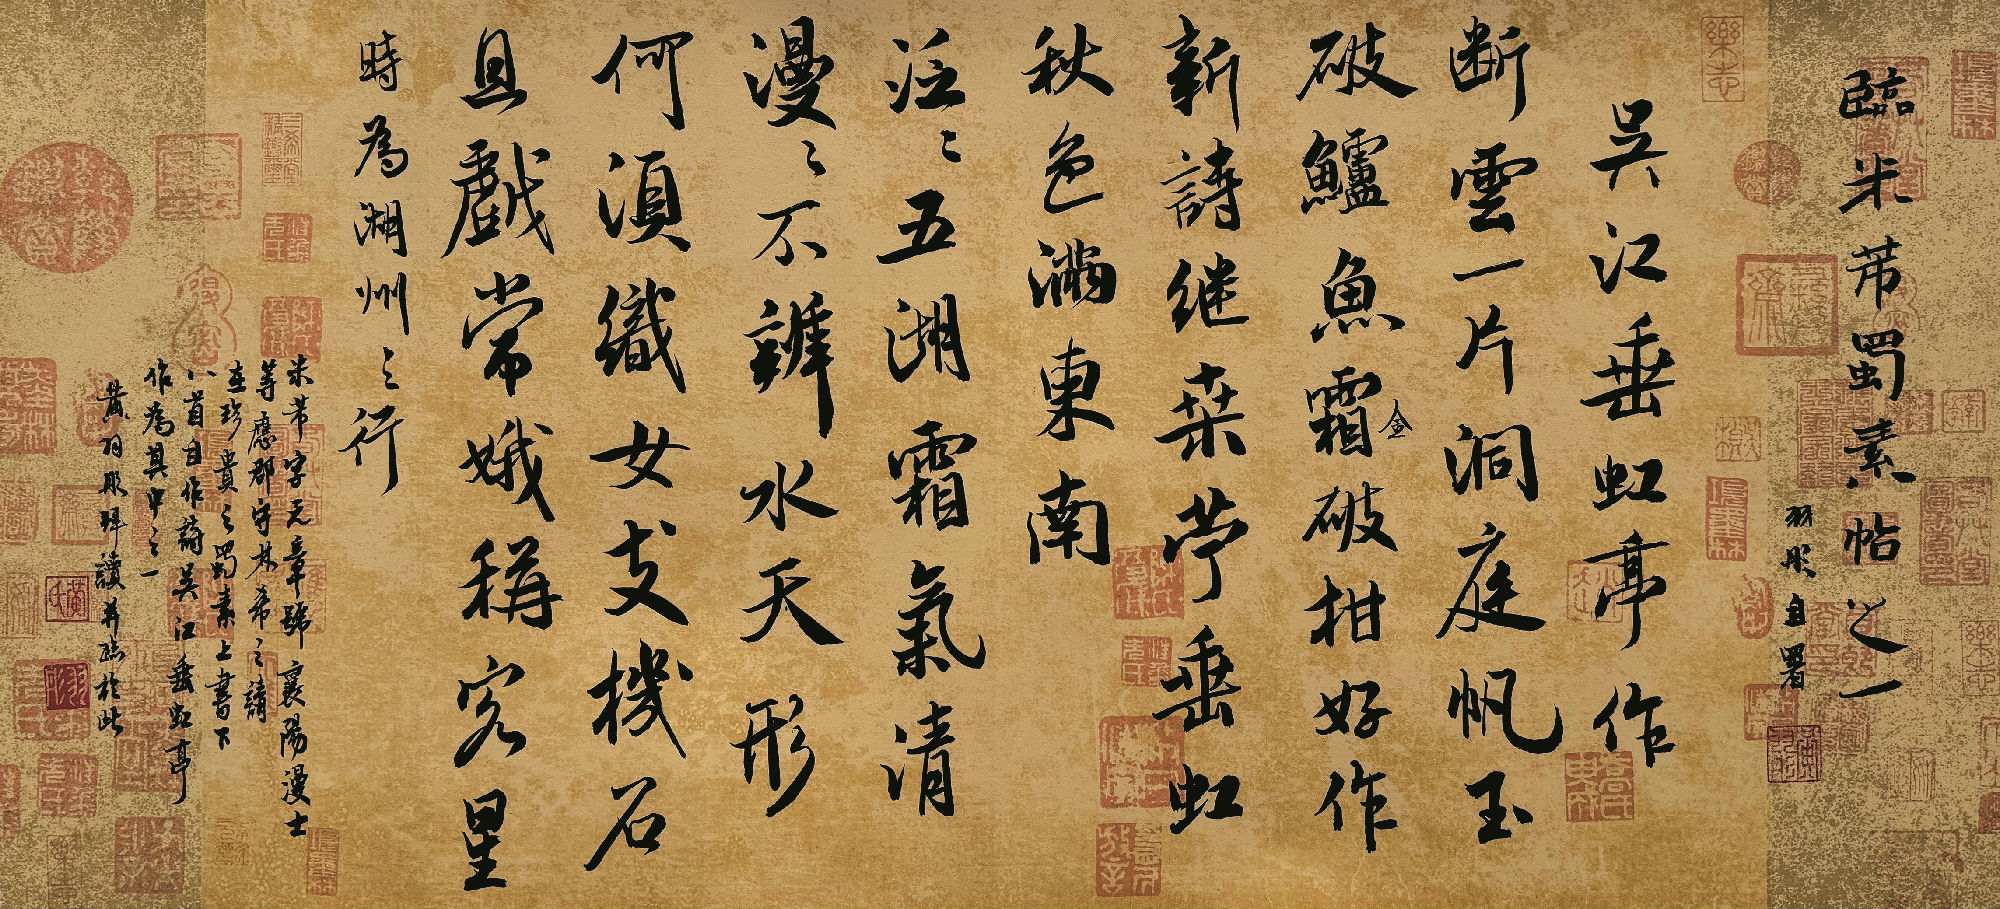 臨米芾蜀素帖之一
羽彤自署
吴江垂虹亭作
断雲一片洞庭帆玉
破鱸魚霜金破柑好作
新詩继桒苧垂虹
秋色满東南
泛〻五湖霜氣清
漫〻不辨水天形
何須織女支機石
且戲常娥稱客星
時為湖州之行
米芾字元章號襄陽漫士
等應郡守林希之請
在珍貴之蜀素上書下
八首自作詩吴江垂虹亭
作為其中之一
黄羽彤拜讀并臨於此